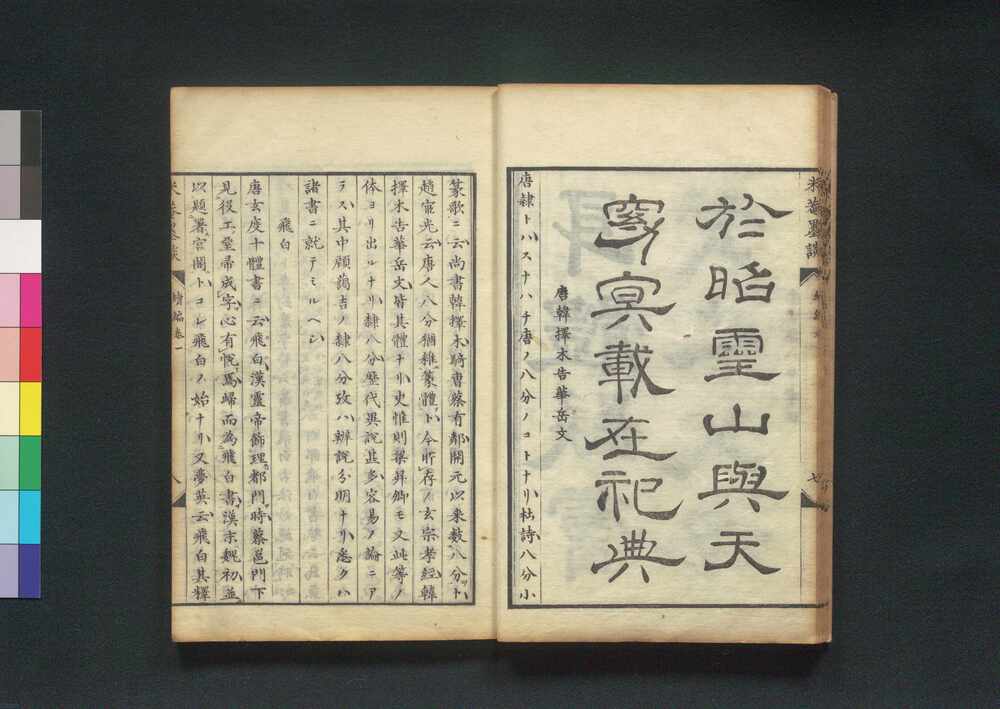 米菴墨談
於昭靈山與天
窈冥載在祀典
唐韓擇木告華岳文
唐隸トハスナハチ唐ノ八分ノコトナリ杜詩八分小
篆歌ニ云尚書韓擇木騎曹蔡有鄰開元以来数八分ト
趙宦光云唐人八分猶雑篆體ト今所存ノ玄宗孝經韓
擇木告華岳文皆其體ナリ史惟則梁昇卿モ又此等ノ
体ヨリ出ルナリ隸八分歴代異説甚多容易ノ論ニア
ラス其中顧藹吉ノ隸八分攷ハ辨説分明ナリ悉クハ
諸書ニ就テミルヘシ
飛白
唐玄度十體書ニ云飛白漢靈帝飾理都門時蔡邕門下
見役工堊帚成字心有悦焉歸而為飛白書漢末魏初並
以題署宮閣トコレ飛白ノ始ナリ又夢英云飛白其擇
續編卷一
八